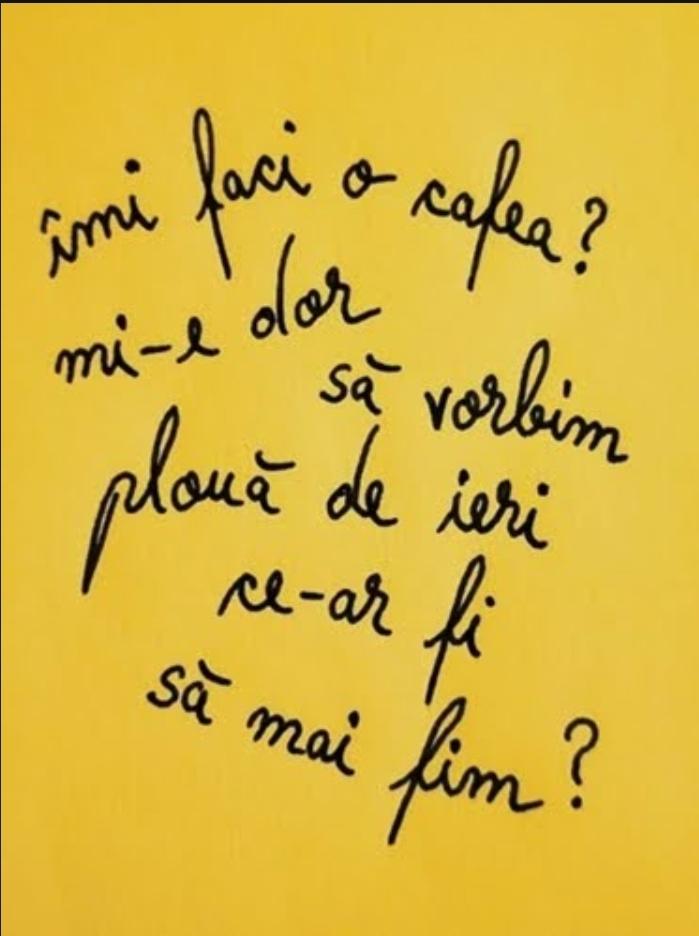 îmi faci o cafea?
mi-e dor
să vorbim
plouă de ieri
ce-ar fi
să mai fim?